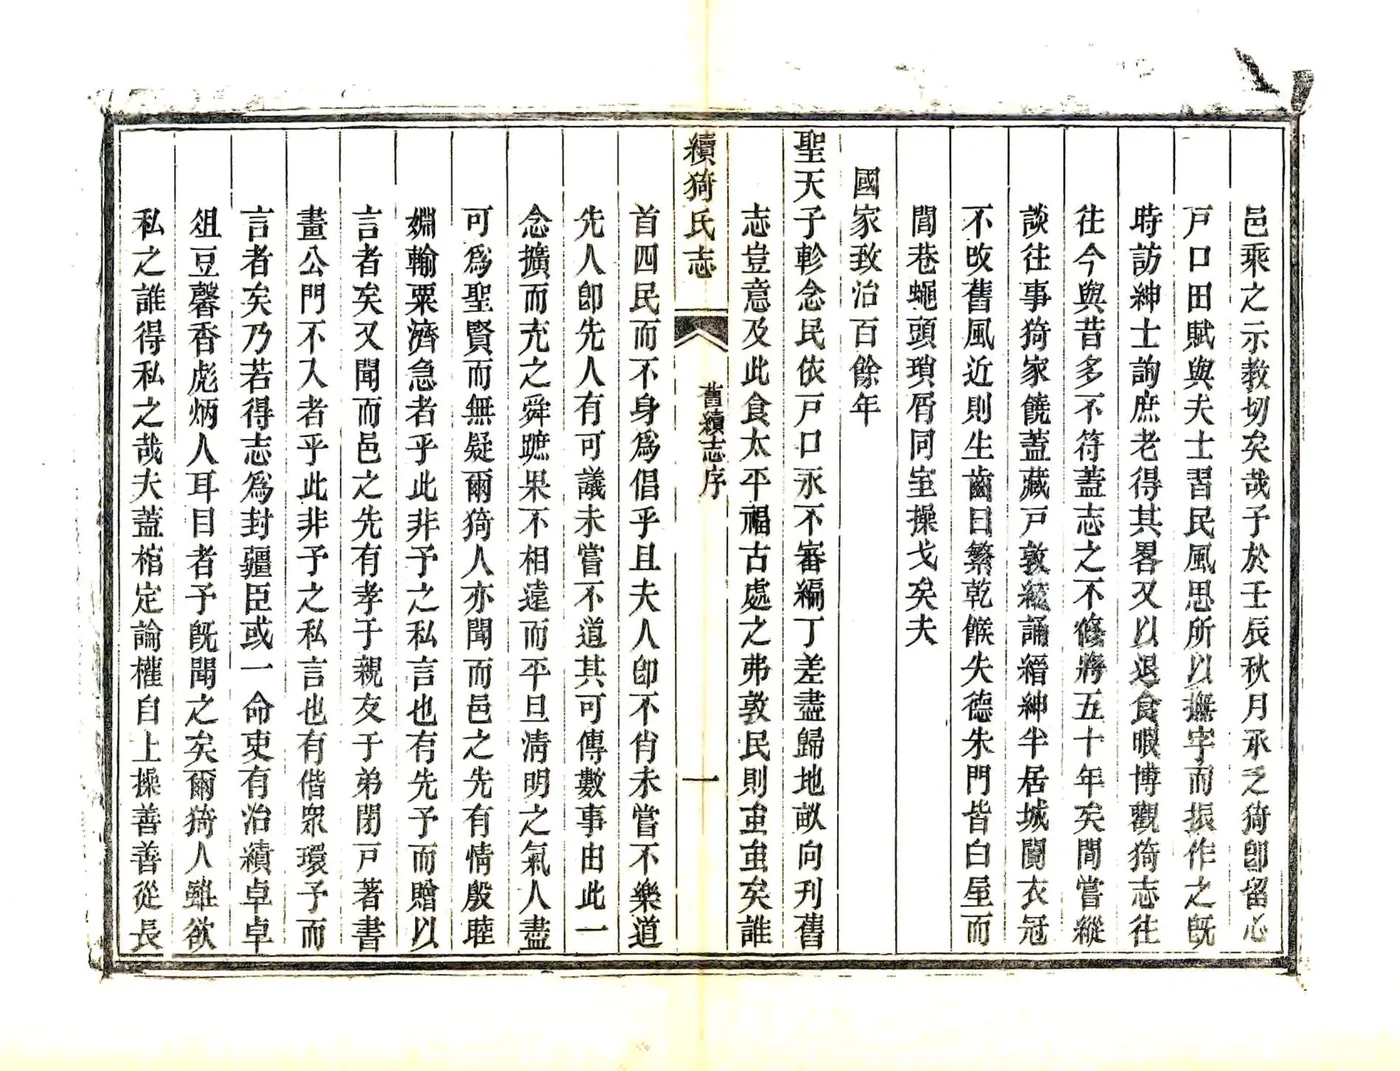 邑乘之示教切矣哉予於壬辰秋月承乏猗卽留心
戸口田賦與夫士習民風思所以撫字而振作之旣
時訪紳士詢庶老得其畧又以退食暇博觀猗志往
往今與昔多不符蓋志之不修將五十年矣間嘗縱
談往事猗家饒蓋藏戸敦絃誦縉紳半居城闉衣冠
不改舊風近則生齒日繁乾餱失德朱門皆白屋而
閭巷蠅頭瑣屑同室操戈矣夫
國家致治百餘年
聖天子軫念民依戸口永不審編丁差盡歸地畝向刊舊
志豈意及此食太平福古處之弗敦民則蚩蚩矣誰
續猗氏志
舊續志序
一
首四民而不身爲倡乎且夫人卽不肖未嘗不樂道
先人卽先人有可議未嘗不道其可傳數事由此一
念擴而充之舜蹠果不相遠而平旦淸明之氣人盡
可爲聖賢而無疑爾猗人亦聞而邑之先有情殷睦
婣輸粟濟急者乎此非予之私言也有先予而贈以
言者矣又聞而邑之先有孝子親友于弟閉戸著書
畫公門不入者乎此非予之私言也有偕眾環予而
言者矣乃若得志爲封疆臣或一命吏有治績卓卓
俎豆馨香彪炳人耳目者予旣聞之矣爾猗人雖欲
私之誰得私之哉夫蓋棺定論權自上操善善從長